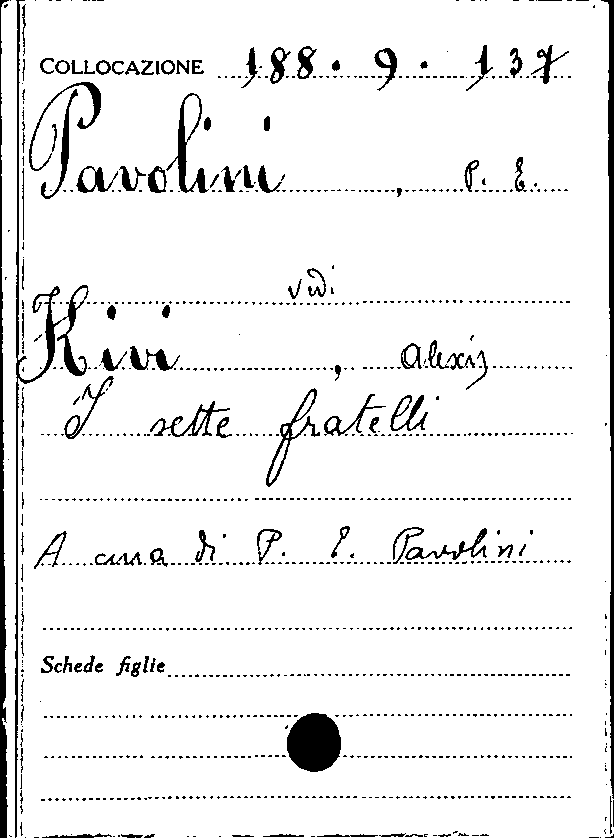 COLLOCAZIONE 188. 9. 137
Pavolini, P. E.
vedi
Kivi, Alexis
I sette fratelli
A cura di P. E. Pavolini
Schede figlie